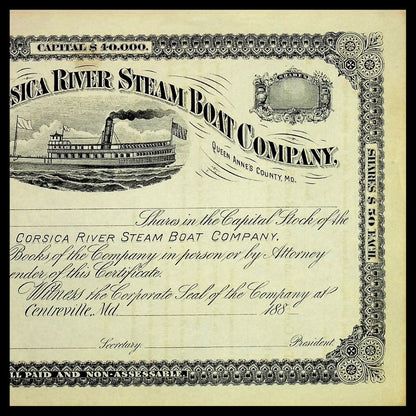 CAPITAL $ 40.000.
SHARES
CORSICA RIVER STEAM BOAT COMPANY.
QUEEN ANNE'S COUNTY, MD.
Shares in the Capital Stock of the
CORSICA RIVER STEAM BOAT COMPANY,
Books of the Company in person or by Attorney
ender of this Certificate.
Witness the Corporate Seal of the Company at
Centreville, Md. 188
Secretary. President.
LL PAID AND NON-ASSESSABLE.
SHARES $ 50 EACH.